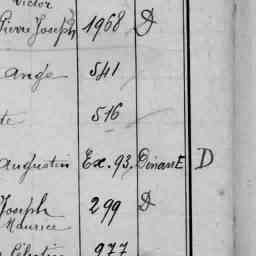 Victor
Pierre Joseph 1968 D
ange 541
te 516
augustin Ex. 93. Dinant D
Joseph 299 D
Maurice
Célestin 977